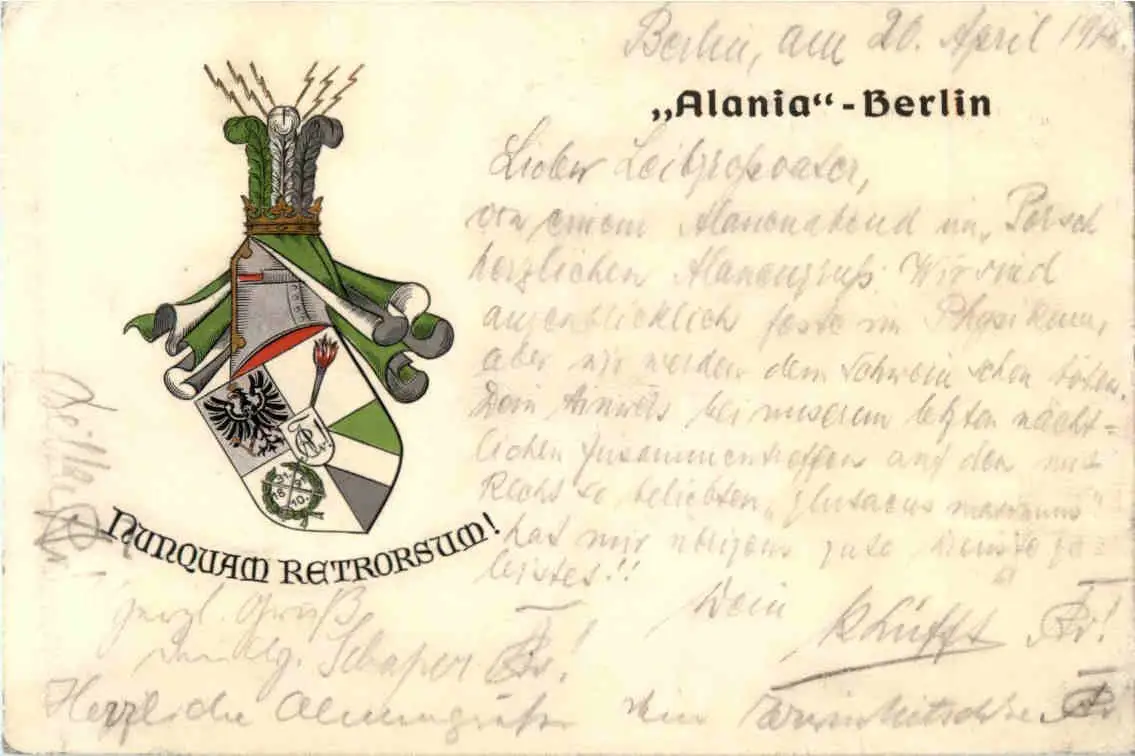 Berlin, am 20. April 19
„Alania“ - Berlin
Lieber Leibgroßvater,
von einem Alanenabend im „
herzlichen Alanengruß. Wir sind
augenblicklich feste im Physikum,
aber wir werden dem Schwein schon töten.
Dein Hinweis bei unserem letzten nächt-
lichen Zusammentreffen auf den mit
Recht so beliebten „glutaeus maximus“
hat mir übrigens gute Dienste ge-
leistet!!
Dein
NUNQUAM RETRORSUM!
21. 5.
18 10.
herzl. Gruß
Schaper
Herzliche Alanengrüße